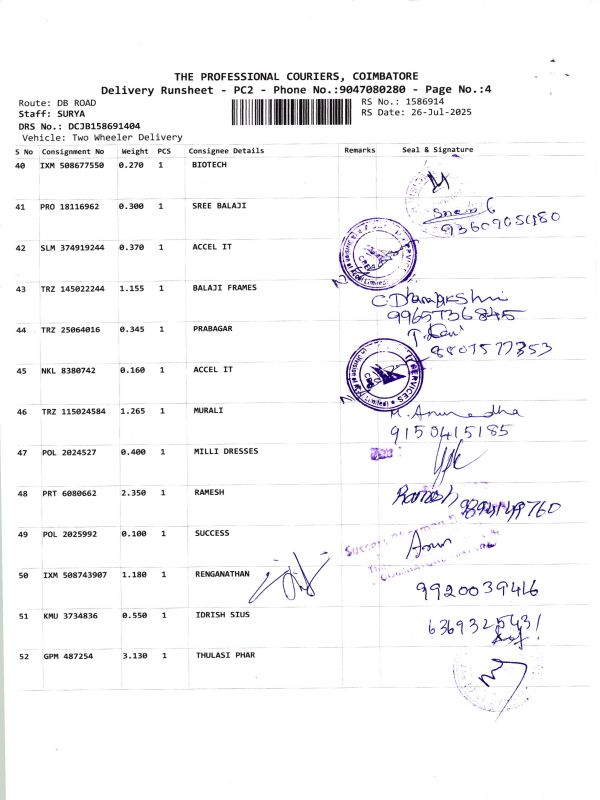 THE PROFESSIONAL COURIERS, COIMBATORE
Delivery Runsheet - PC2 - Phone No.:9047080280 - Page No.:4
Route: DB ROAD
RS No.: 1586914
Staff: SURYA
RS Date: 26-Jul-2025
DRS No.: DCJB158691404
Vehicle: Two Wheeler Delivery
S No Consignment No Weight PCS Consignee Details Remarks Seal & Signature
40 IXM 508677550 0.270 1 BIOTECH
41 PRO 18116962 0.300 1 SREE BALAJI
9360905480
42 SLM 374919244 0.370 1 ACCEL IT
43 TRZ 145022244 1.155 1 BALAJI FRAMES
9965736845
44 TRZ 25064016 0.345 1 PRABAGAR
8807577353
45 NKL 8380742 0.160 1 ACCEL IT
SERVICES
46 TRZ 115024584 1.265 1 MURALI
M. Anuradha
9150415185
47 POL 2024527 0.400 1 MILLI DRESSES
48 PRT 6080662 2.350 1 RAMESH
Ramesh
49 POL 2025992 0.100 1 SUCCESS
Arun
50 IXM 508743907 1.180 1 RENGANATHAN
9920039416
51 KMU 3734836 0.550 1 IDRISH SIUS
52 GPM 487254 3.130 1 THULASI PHAR